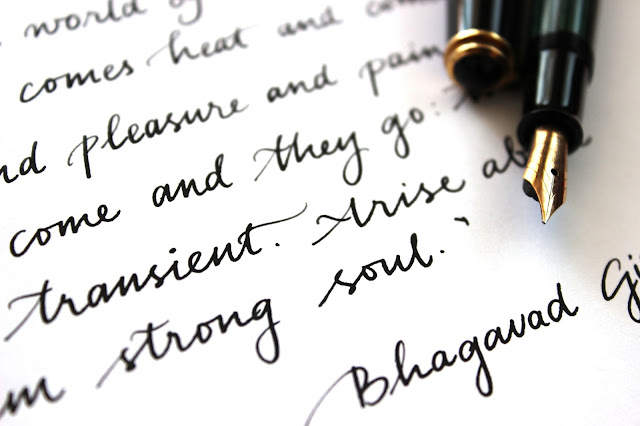 world of
comes heat and
nd pleasure and pain
come and they go:
transient. Arise ab
m strong soul."
Bhagavad Gi